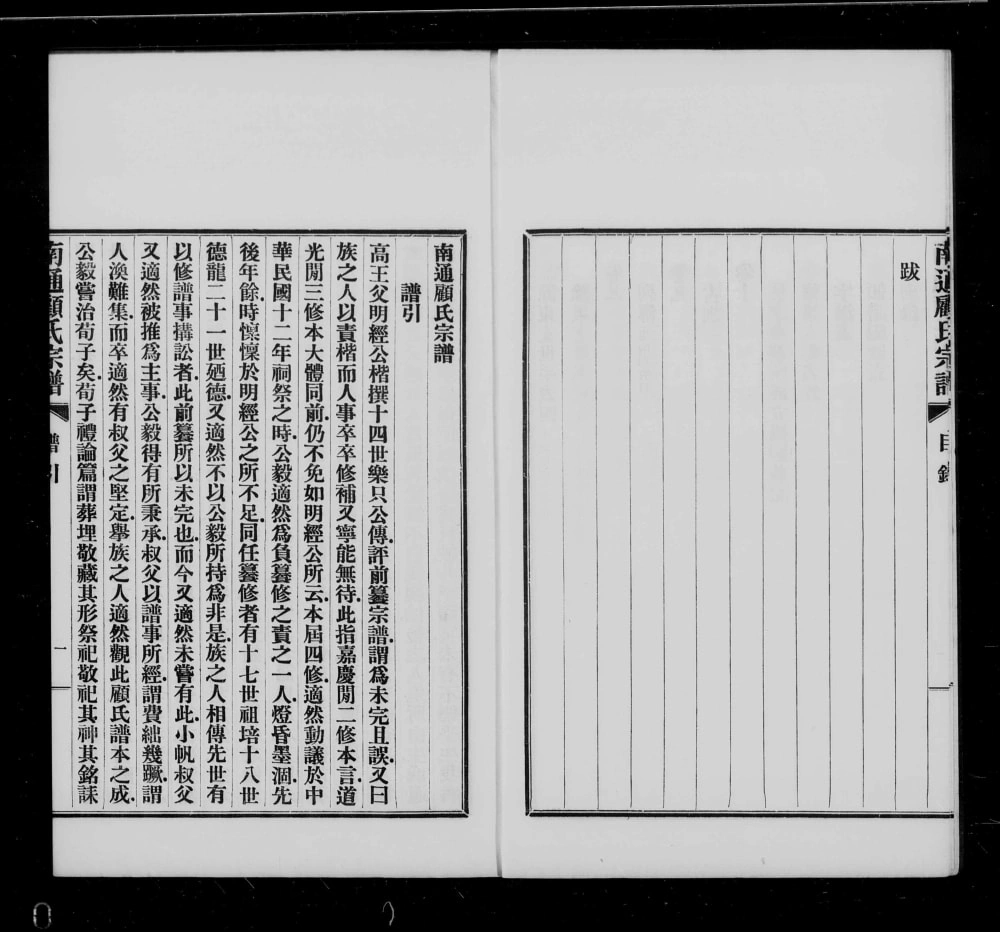 跋
南通顧氏宗譜
目錄
南通顧氏宗譜
譜引
高王父明經公楷撰十四世樂只公傳評前纂宗譜謂爲未完且誤又曰
族之人以責楷而人事卒卒修補又寧能無待此指嘉慶閒二修本言道
光閒三修本大體同前仍不免如明經公所云本屆四修適然動議於中
華民國十二年祠祭之時公毅適然爲負纂修之責之一人燈昏墨涸先
後年餘時懍懍於明經公之所不足同任纂修者有十七世祖培十八世
德龍二十一世廼德又適然不以公毅所持爲非是族之人相傳先世有
以修譜事搆訟者此前纂所以未完也而今又適然未嘗有此小帆叔父
又適然被推爲主事公毅得有所秉承叔父以譜事所經謂費絀幾蹶謂
人渙難集而卒適然有叔父之堅定舉族之人適然觀此顧氏譜本之成
公毅嘗治荀子矣荀子禮論篇謂葬埋敬藏其形祭祀敬祀其神其銘誄
南通顧氏宗譜
譜引
一